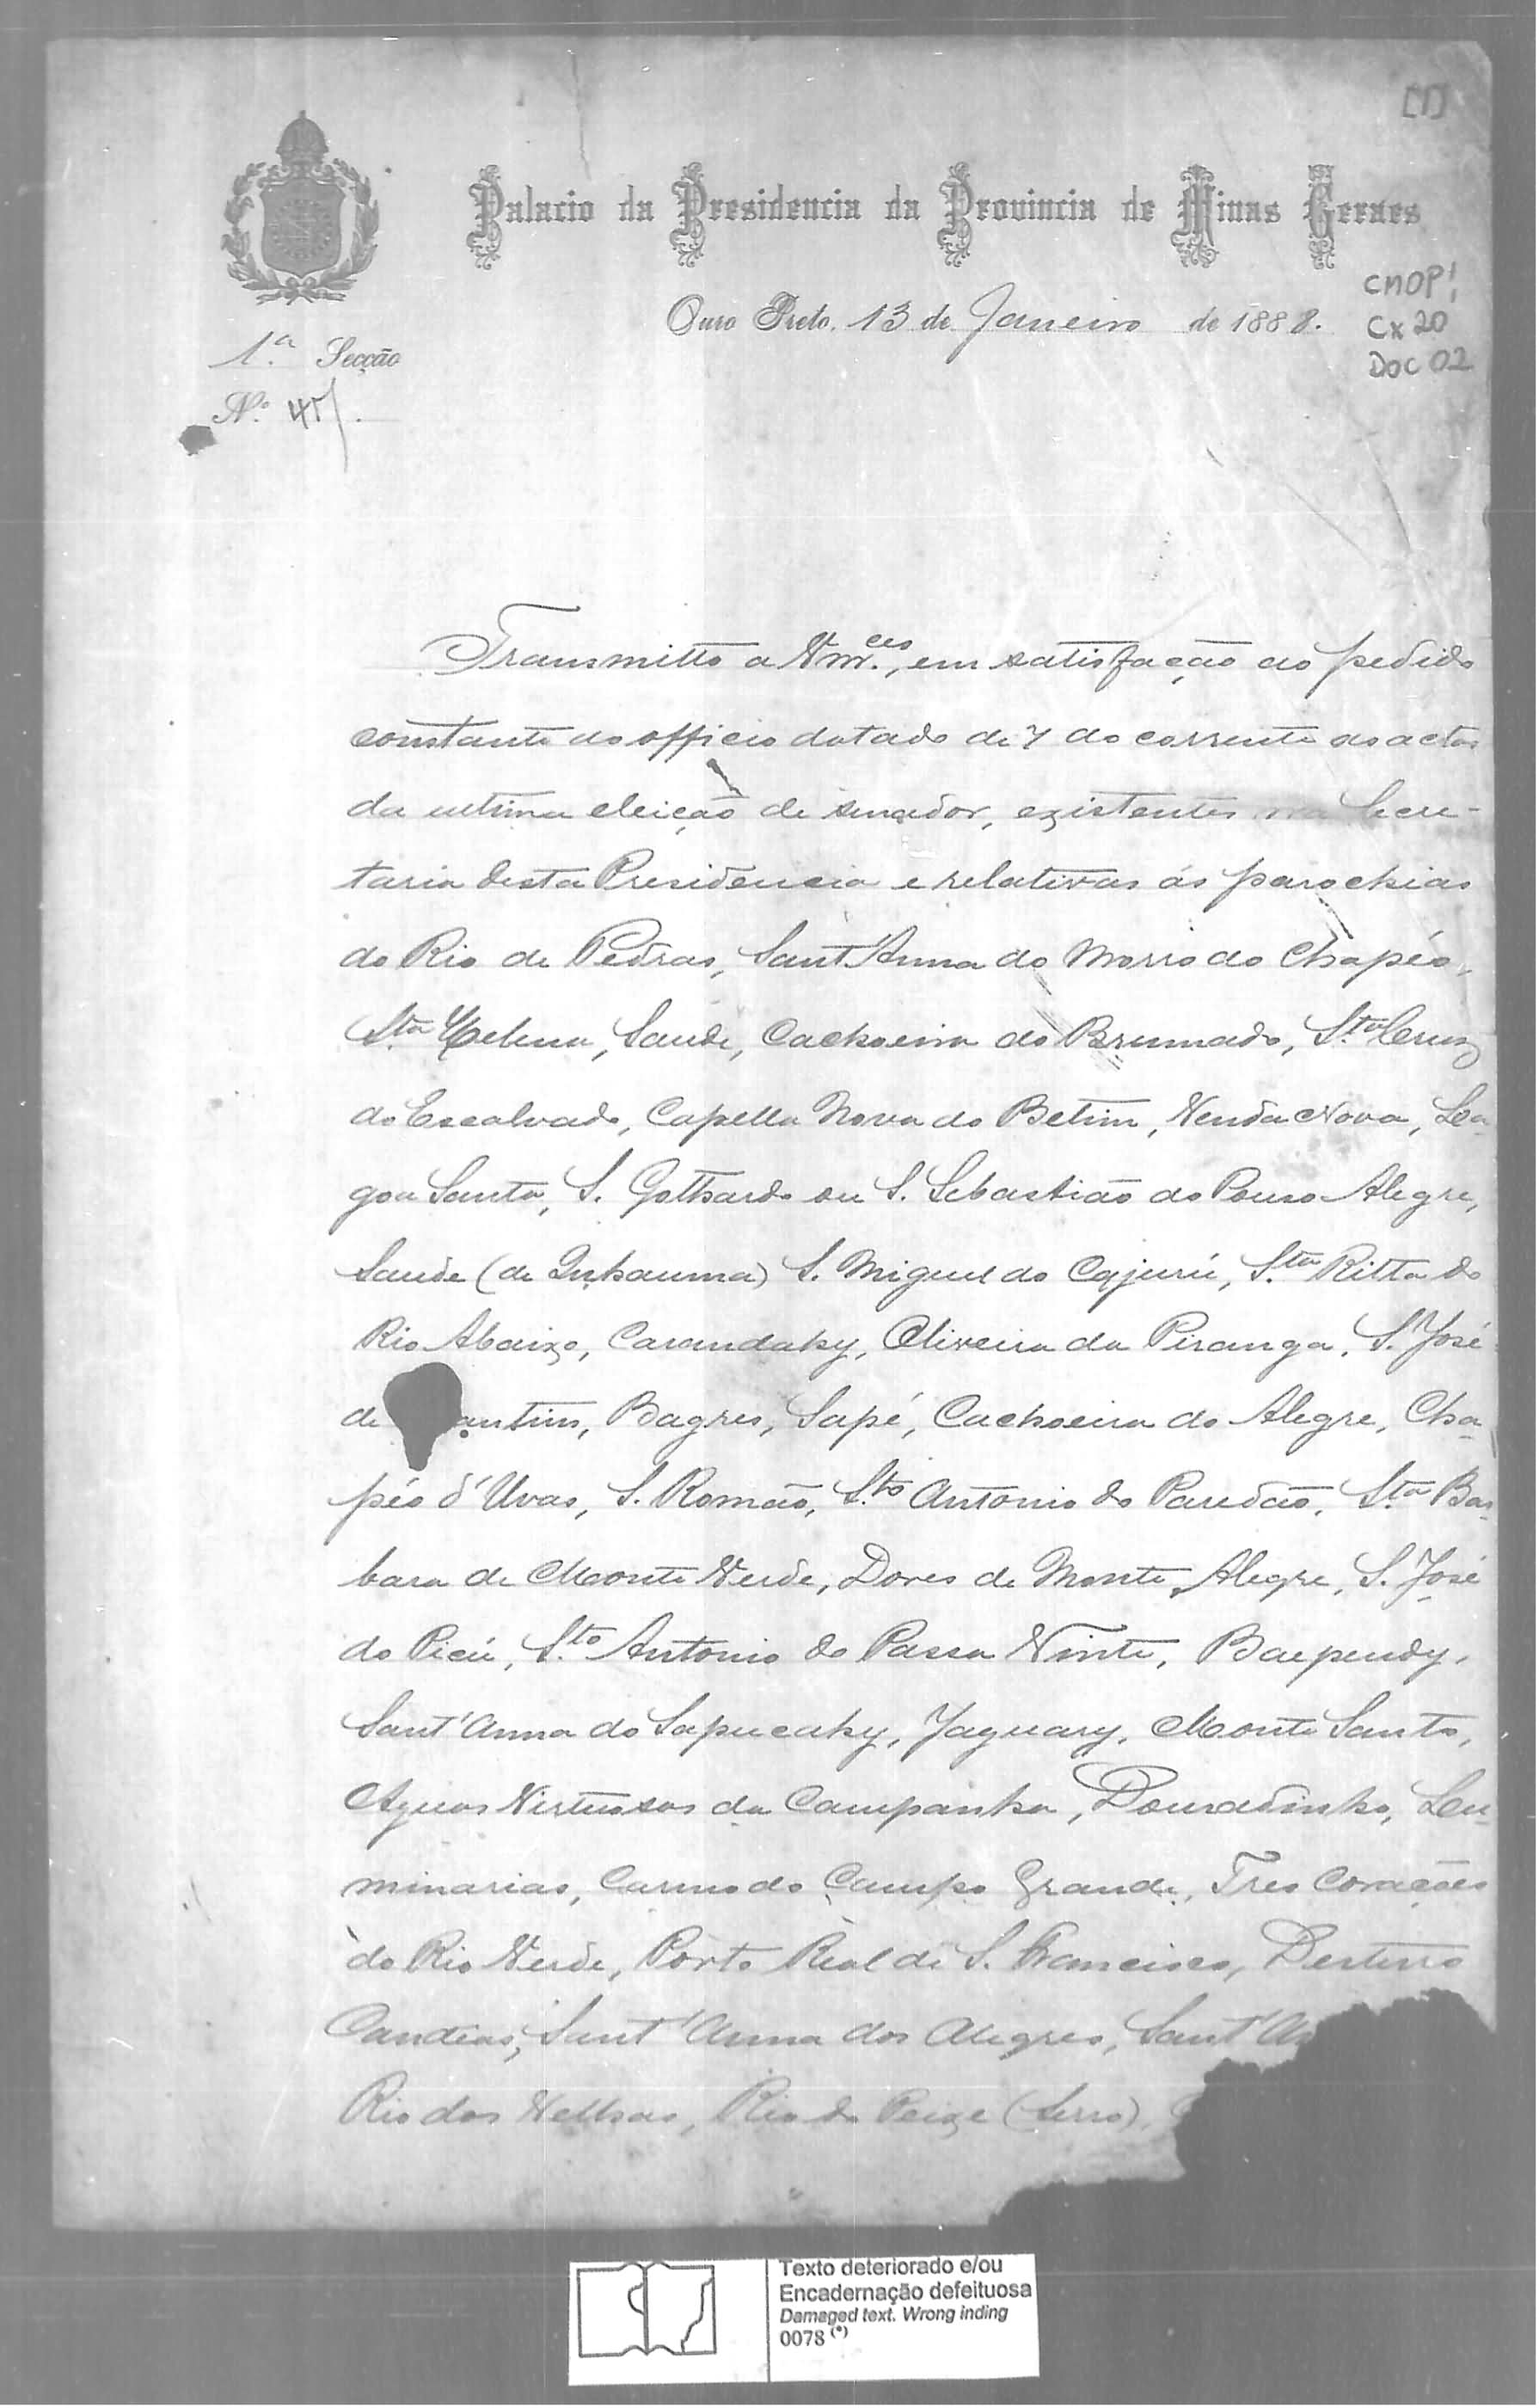 [1]
Palacio da Presidencia da Provincia de Minas Geraes
CMOP!
Ouro Preto, 13 de Janeiro de 1888.
Cx 20
1.ª Secção
DOC 02
N.º
Transmitto a Vm.ces, em satisfação ao pedido
constante do officio datado de 7 do corrente as actas
da ultima eleição de senador, existentes na Secre-
taria desta Presidencia e relativas ás parochias
do Rio de Pedras, Sant'Anna do Morro do Chapéo,
Sta Helena, Saude, Cachoeira do Brumado, S.ta Cruz
do Escalvado, Capella Nova do Betim, Venda Nova, La-
goa Santa, S. Gothardo ou S. Sebastião do Pouso Alegre,
Saude (de Inhauma) S. Miguel do Cajurú, S.ta Ritta do
Rio Abaixo, Carandahy, Oliveira da Piranga, S. José
de antins, Bagres, Sapé, Cachoeira do Alegre, Cha-
péo d'Uvas, S. Romão, S.to Antonio do Paredão, S.ta Bar-
bara de Monte Verde, Dores de Monte Alegre, S. José
do Picú, S.to Antonio do Passa Vinte, Baependy,
Sant'Anna do Sapucahy, Jaguary, Monte Santo,
Aguas Virtuosas da Campanha, Douradinho, Lu-
minarias, Carmo do Campo Grande, Tres Corações
do Rio Verde, Porto Real de S. Francisco, Desterro
Candeias, Sant'Anna dos Alegres, Sant'An
Rio das Velhas, Rio do Peixe (Serro),
Texto deteriorado e/ou
Encadernação defeituosa
Damaged text. Wrong inding
0078 (*)